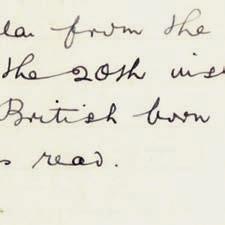 la. from the
the 20th inst
British born
s read.